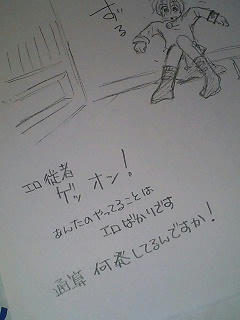 ずる
エロ従者
ゲッ オン!
あんたのやってることは
エロばかりです
通算 何発してるんですか!